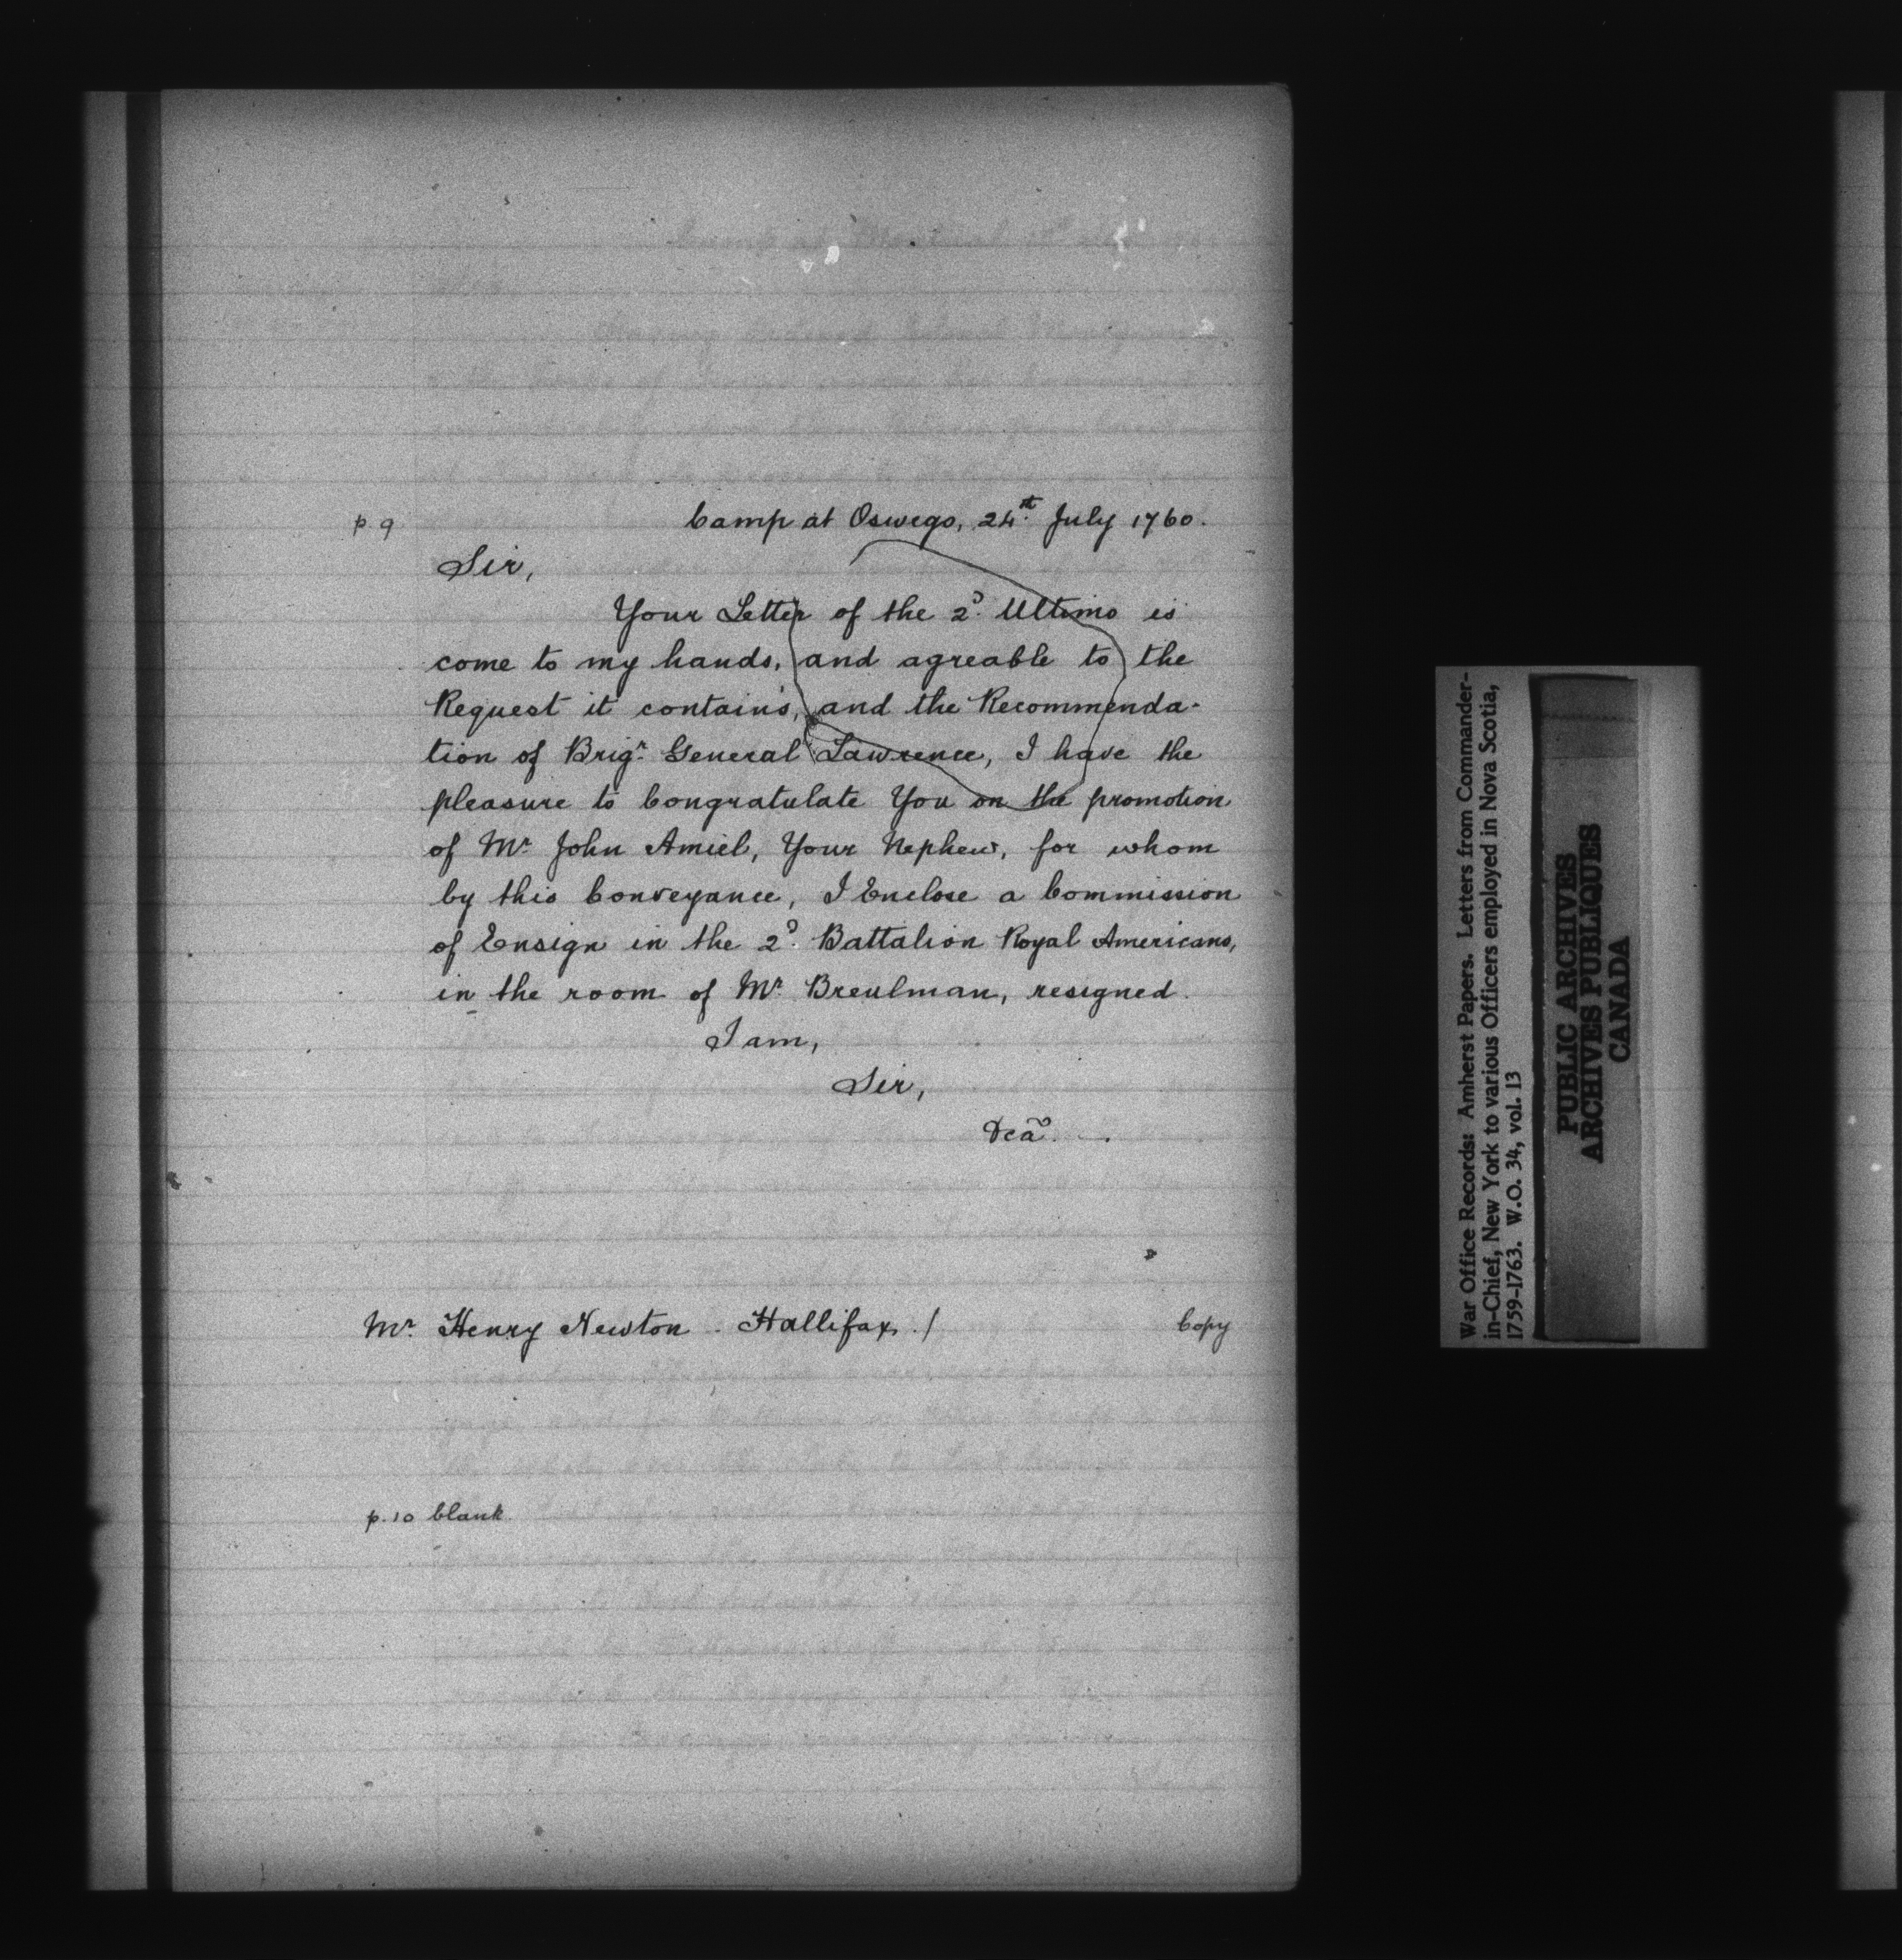 p 9
Camp at Oswego, 24th July 1760.
Sir,
Your Letter of the 2d. Ultimo is
come to my hands, and agreable to the
Request it contains, and the Recommenda-
tion of Brigr. General Lawrence, I have the
pleasure to Congratulate You on the promotion
of Mr. John Amiel, Your Nephew, for whom
by this Conveyance, I Enclose a Commission
of Ensign in the 2d. Battalion Royal Americans,
in the room of Mr. Breulman, resigned.
I am,
Sir,
&ca.
Mr. Henry Newton - Hallifax /
Copy
p. 10 blank
War Office Records: Amherst Papers. Letters from Commander-
in-Chief, New York to various Officers employed in Nova Scotia,
1759-1763. W.O. 34, vol. 13
PUBLIC ARCHIVES
ARCHIVES PUBLIQUES
CANADA